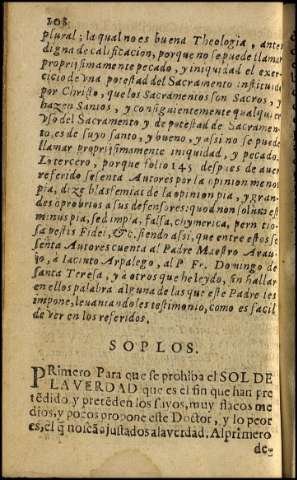 208
plural; la qual no es buena Theologia, antes
digna de calificacion, porque no se puede llamar
propriſsimamente pecado, y iniquidad el exer-
cicio de vna poteſtad del Sacramento inſtituida
por Chriſto, que los Sacramentos ſon Sacros, y
hazen Santos, y conſiguientemente qualquier
vſo del Sacramento y de poteſtad de Sacramen-
to, es de ſuyo ſanto, y bueno, y aſsi no ſe puede
llamar propriſsimamente iniquidad, y pecado.
Lo tercero, porque folio 145 deſpues de auer
referido ſeſenta Autores por la opinion menos
pia, dize blasfemias de la opinion pia, y gran-
des oprobrios a ſus defenſores: quod non ſolũ eſt
minus pia, ſed impia, falſa, chymerica, pernitio-
ſa peſtis Fidei, &c. ſiendo aſsi, que entre eſtos ſe-
ſenta Autores cuenta al Padre Maeſtro Arau-
jo, a Iacinto Arpalego, al P. Fr. Domingo de
ſanta Tereſa, y a otros que he leydo, ſin hallar
en ellos palabra alguna de las que eſte Padre les
impone, leuantandoles teſtimonio, como es facil
de ver en los referidos.
SOPLOS.
PRimero Para que ſe prohiba el SOL DE
LA VERDAD que es el fin que han pre
tẽdido y pretẽden los ſuyos, muy flacos me
dios, y pocos propone eſte Doctor, y lo peor
es, el q̃ no ſeã ajuſtados a la verdad. Al primero
de-